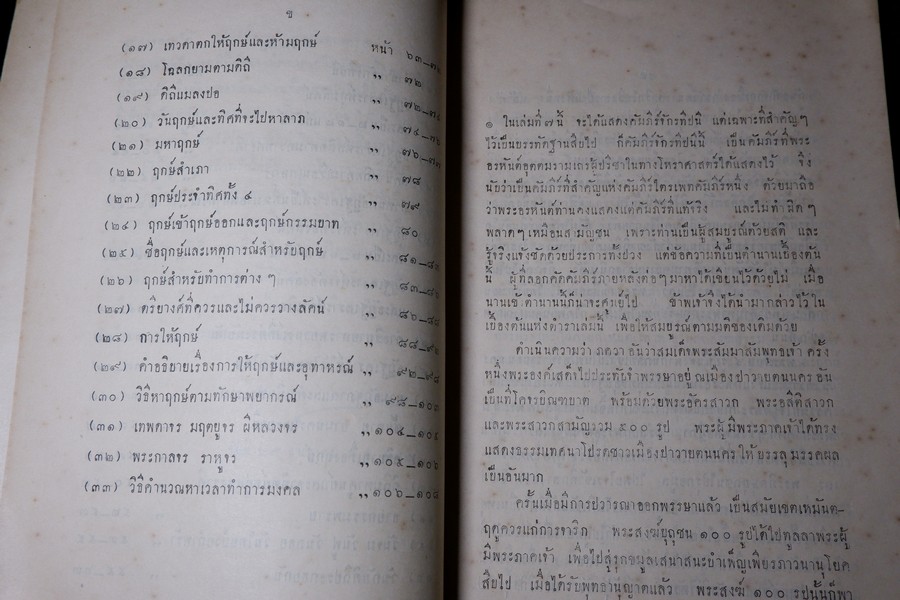 ข
(๑๗) เทวดาตกให้ฤกษ์และห้ามฤกษ์ หน้า ๖๓_๗๒
(๑๘) โฉลกยามตามดิถี ,, ๗๒
(๑๙) ดิถีแมลงปอ ,, ๗๒_๗๔
(๒๐) วันฤกษ์และทิศที่จะไปหาลาภ ,, ๗๔_๗๖
(๒๑) มหาฤกษ์ ,, ๗๖_๗๗
(๒๒) ฤกษ์สำเภา ,, ๗๘
(๒๓) ฤกษ์ประจำทิศทั้ง ๔ ,, ๗๙
(๒๔) ฤกษ์เข้าฤกษ์ออกและฤกษ์กรรมบาท ,, ๘๐
(๒๕) ชื่อฤกษ์และเหตุการณ์สำหรับฤกษ์ ,, ๘๑_
(๒๖) ฤกษ์สำหรับทำการต่าง ๆ ,, ๘๓_๘๖
(๒๗) ตรียางค์ที่ควรและไม่ควรวางลัคน์ ,, ๘๖_๘๘
(๒๘) การให้ฤกษ์ ,, ๘๘_
(๒๙) คำอธิบายเรื่องการให้ฤกษ์และอุทาหรณ์ ,, ๙๒_๙๘
(๓๐) วิธีหาฤกษ์ตามทักษาพยากรณ์ ,, ๙๘_๑๐๓
(๓๑) เทพดาจร มฤตยูจร ผีหลวงจร ,, ๑๐๔_๑๐๕
(๓๒) พระกาลจร ราหูจร ,, ๑๐๕_๑๐๖
(๓๓) วิธีคำนวณหาเวลาทำการมงคล ,, ๑๐๖_๑๐๘
๑ ในเล่มที่ ๗ นี้ จะได้แสดงคัมภีร์จักรทีปนี แต่เฉพาะที่สำคัญๆ
ไว้เป็นบรรทัดฐานสืบไป ก็คัมภีร์จักรทีปนีนี้ เป็นคัมภีร์ที่พระ
อรหันต์อุตตมรามเถรผู้ปรีชาในทางโหราศาสตร์ได้แสดงไว้ จึง
นับว่าเป็นคัมภีร์ที่สำคัญแห่งคัมภีร์ไตรเพทคัมภีร์หนึ่ง ด้วยมาถือ
ว่าพระอรหันต์ท่านคงแสดงแต่คัมภีร์ที่แท้จริง และไม่ทำผิดๆ
พลาดๆเหมือนสามัญชน เพราะท่านเป็นผู้สมบูรณ์ด้วยสติ และ
รู้จริงแจ้งชัดด้วยประการทั้งปวง แต่ข้อความที่เป็นตำนานเบื้องต้น
นี้ ผู้ที่ลอกคัดคัมภีร์ภายหลังต่อๆมาหาได้เขียนไว้ด้วยไม่ เมื่อ
นานเข้าตำนานนี้ก็น่าจะศูนย์ไป ข้าพเจ้าจึงได้นำมากล่าวไว้ใน
เบื้องต้นแห่งตำราเล่มนี้ เพื่อให้สมบูรณ์ตามมติของเดิมด้วย
ดำเนินความว่า ภควา อันว่าสมเด็จพระสัมมาสัมพุทธเจ้า ครั้ง
หนึ่งพระองค์เสด็จไปประทับจำพรรษาอยู่ ณเมืองปาวายตนนคร อัน
เป็นที่โคจรบิณฑบาต พร้อมด้วยพระอัครสาวก พระอสีติสาวก
และพระสาวกสามัญรวม ๕๐๐ รูป พระผู้มีพระภาคเจ้าได้ทรง
แสดงธรรมเทศนาโปรดชาวเมืองปาวายตนนครให้บรรลุมรรคผล
เป็นอันมาก
ครั้นเมื่อมีการปวารณาออกพรรษาแล้ว เป็นสมัยเขตเหมันต-
ฤดูควรแก่การจาริก พระสงฆ์ปุถุชน ๑๐๐ รูปได้ไปทูลลาพระผู้
มีพระภาคเจ้า เพื่อไปสู่รุกขมูลเสนาสนะบำเพ็ญเพียรภาวนานุโยค
สืบไป เมื่อได้รับพุทธานุญาตแล้ว พระสงฆ์ ๑๐๐ รูปนั้นก็พา